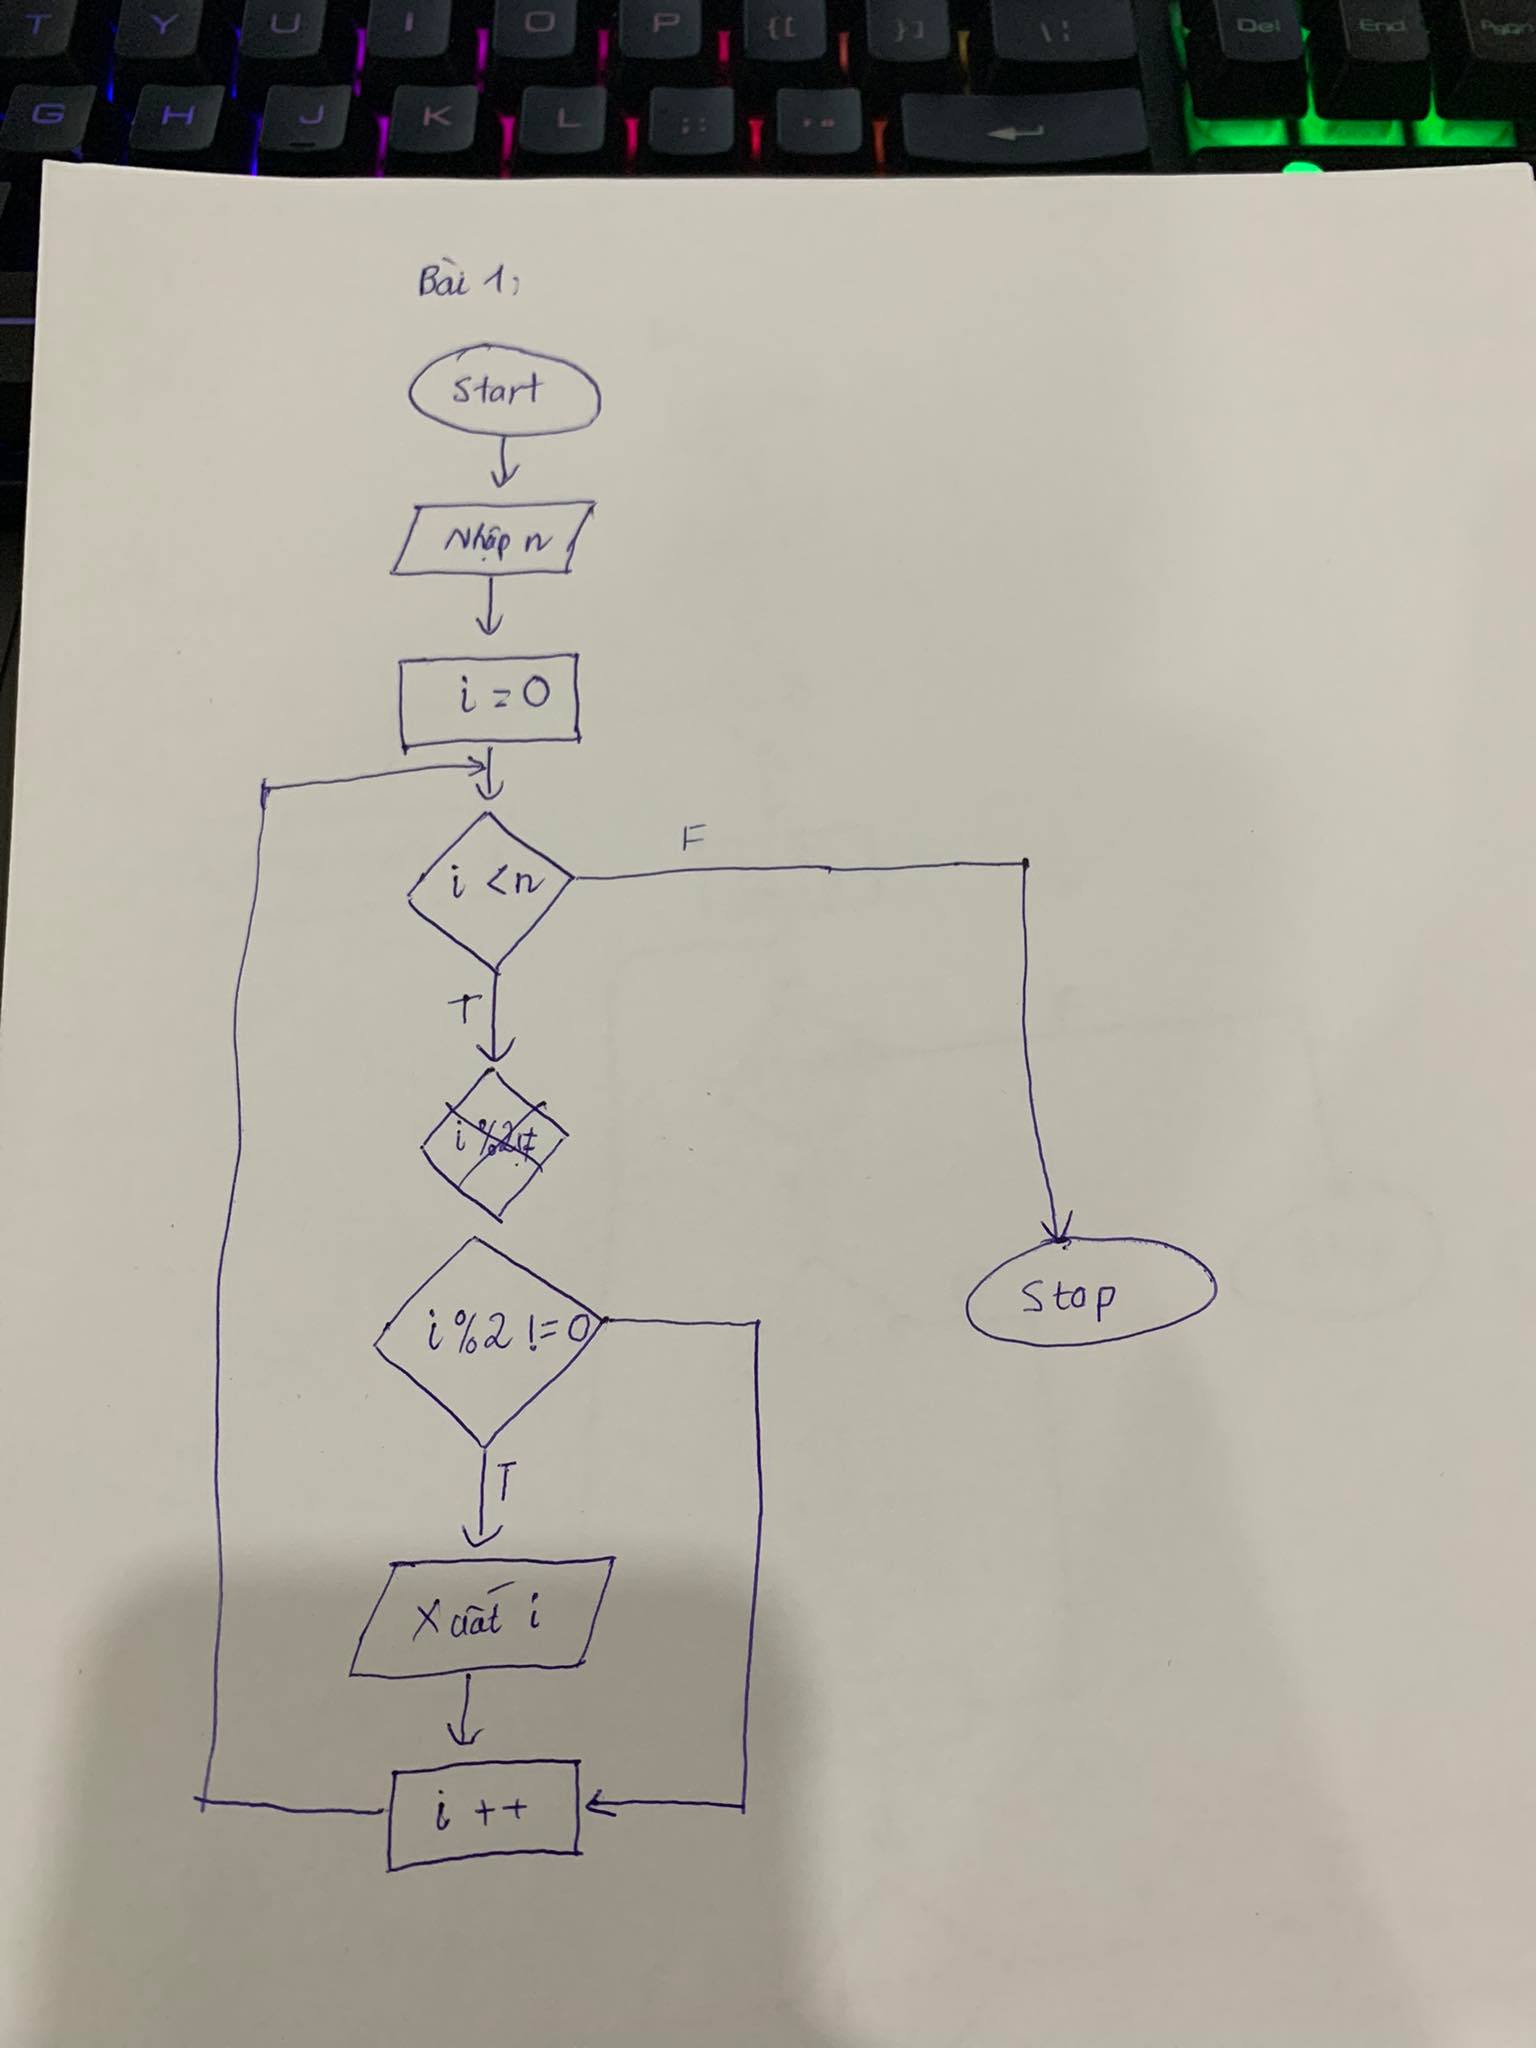 T Y U I O P {[ }] \¦ Del End PgDn
G H J K L ;:
Bài 1,
Start
Nhập n
i = 0
i < n
F
T
i %2
i %2 != 0
T
Xuất i
i ++
Stop